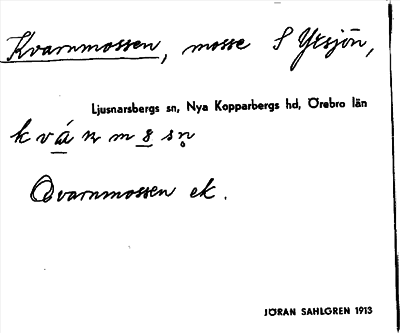 Kvarnmossen, mosse S Yxsjön,
Ljusnarsbergs sn, Nya Kopparbergs hd, Örebro län
k v á r n m 8 s n̥
Qvarnmossen ek.
JÖRAN SAHLGREN 1913